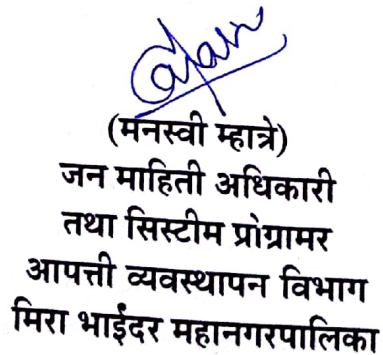 (मनस्वी म्हात्रे)
जन माहिती अधिकारी
तथा सिस्टीम प्रोग्रामर
आपत्ती व्यवस्थापन विभाग
मिरा भाईंदर महानगरपालिका